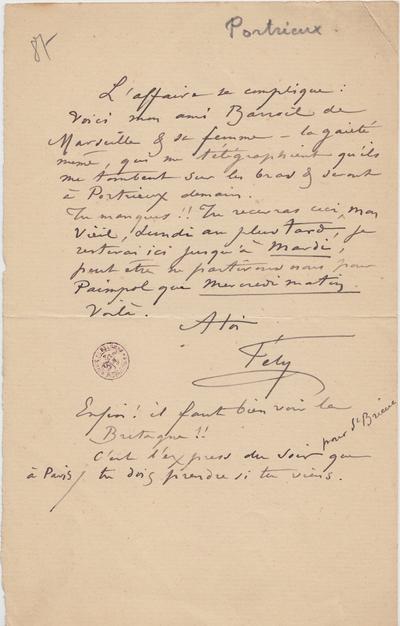 87
Portrieux.
L'affaire se complique :
Voici mon ami Barroil de
Marseille & sa femme – la gaieté
même, qui me télégraphient qu'ils
me tombent sur les bras & seront
à Portrieux demain.
Tu manques !! Tu recevras ceci, mon
Vieil, lundi au plus tard, je
resterai ici jusqu'à Mardi,
peut être ne partirons nous pour
Paimpol que Mercredi matin.
Voilà.
A toi
Fély
Enfin ! il faut bien voir la
Bretagne !!
C'est l'express du soir pour St Brieuc que
à Paris / tu dois prendre si tu viens.